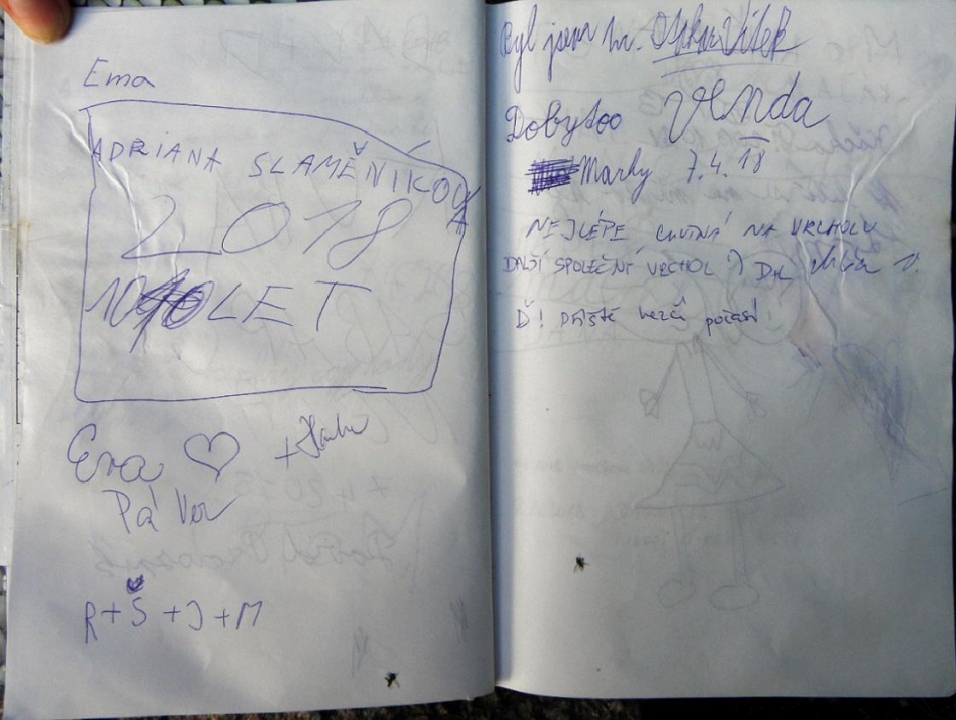 Ema
ADRIANA SLAMĚNÍKOVÁ
2018
10 LET
Eva
Pá Ver
R+Š+J+M
Byl jsem
Dobytoo Venda
Marky 7.4.18
NEJLÉPE CHUTNÁ NA VRCHOLU
DALŠÍ SPOLEČNÍ VRCHOL :) Dík
Ď! Dříště hezčí počasí!